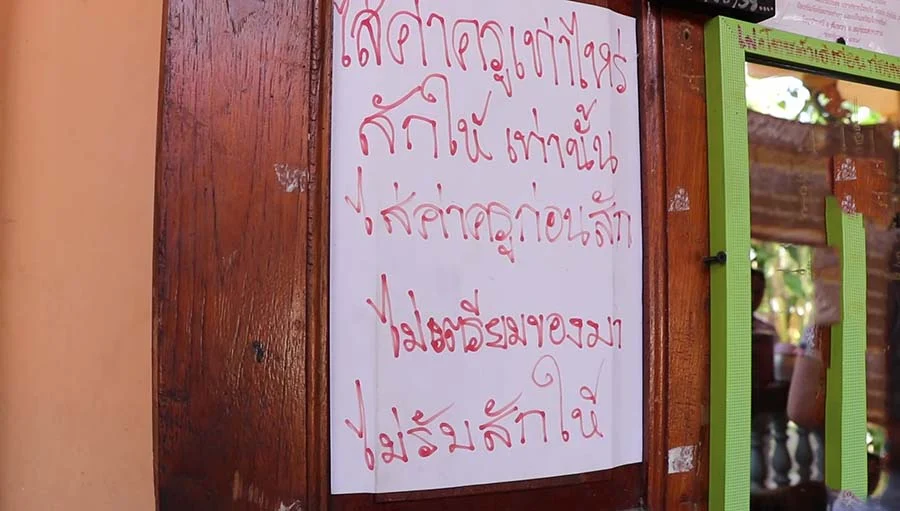 ใส่ค่าครูเท่าไหร่
สักให้ เท่านั้น
ใส่ค่าครูก่อนสัก
ไม่เตรียมของมา
ไม่รับสักให้